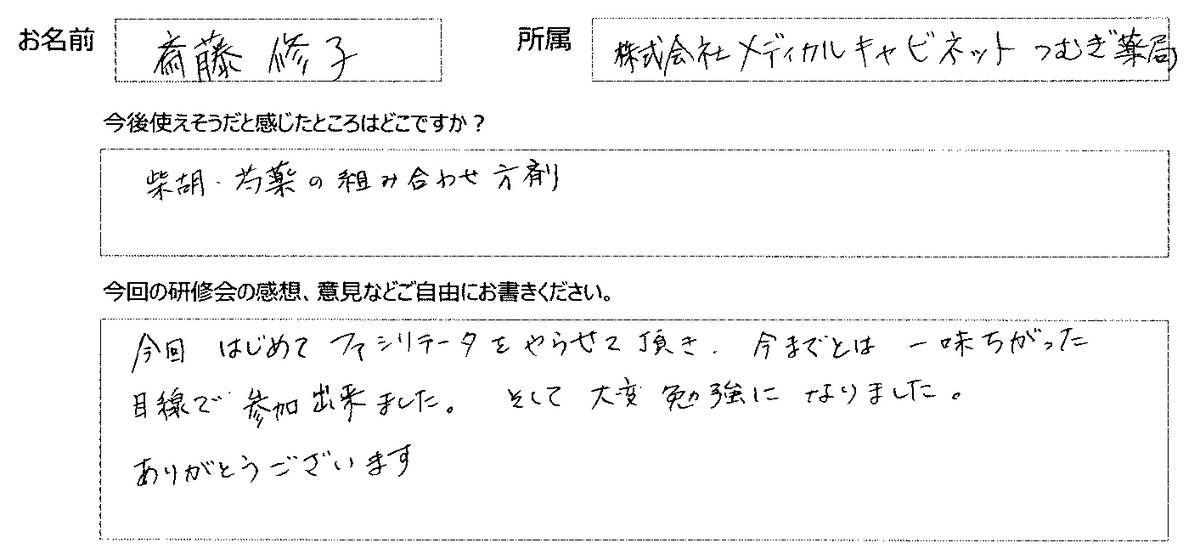 お名前 斎藤 修子 所属 株式会社メディカルキャビネット つむぎ薬局
今後使えそうだと感じたところはどこですか？
柴胡・芍薬の組み合わせ方剤
今回の研修会の感想、意見などご自由にお書きください。
今回 はじめて ファシリテータをやらせて頂き、今までとは 一味ちがった
目線で 参加出来ました。 そして 大変 勉強に なりました。
ありがとうございます